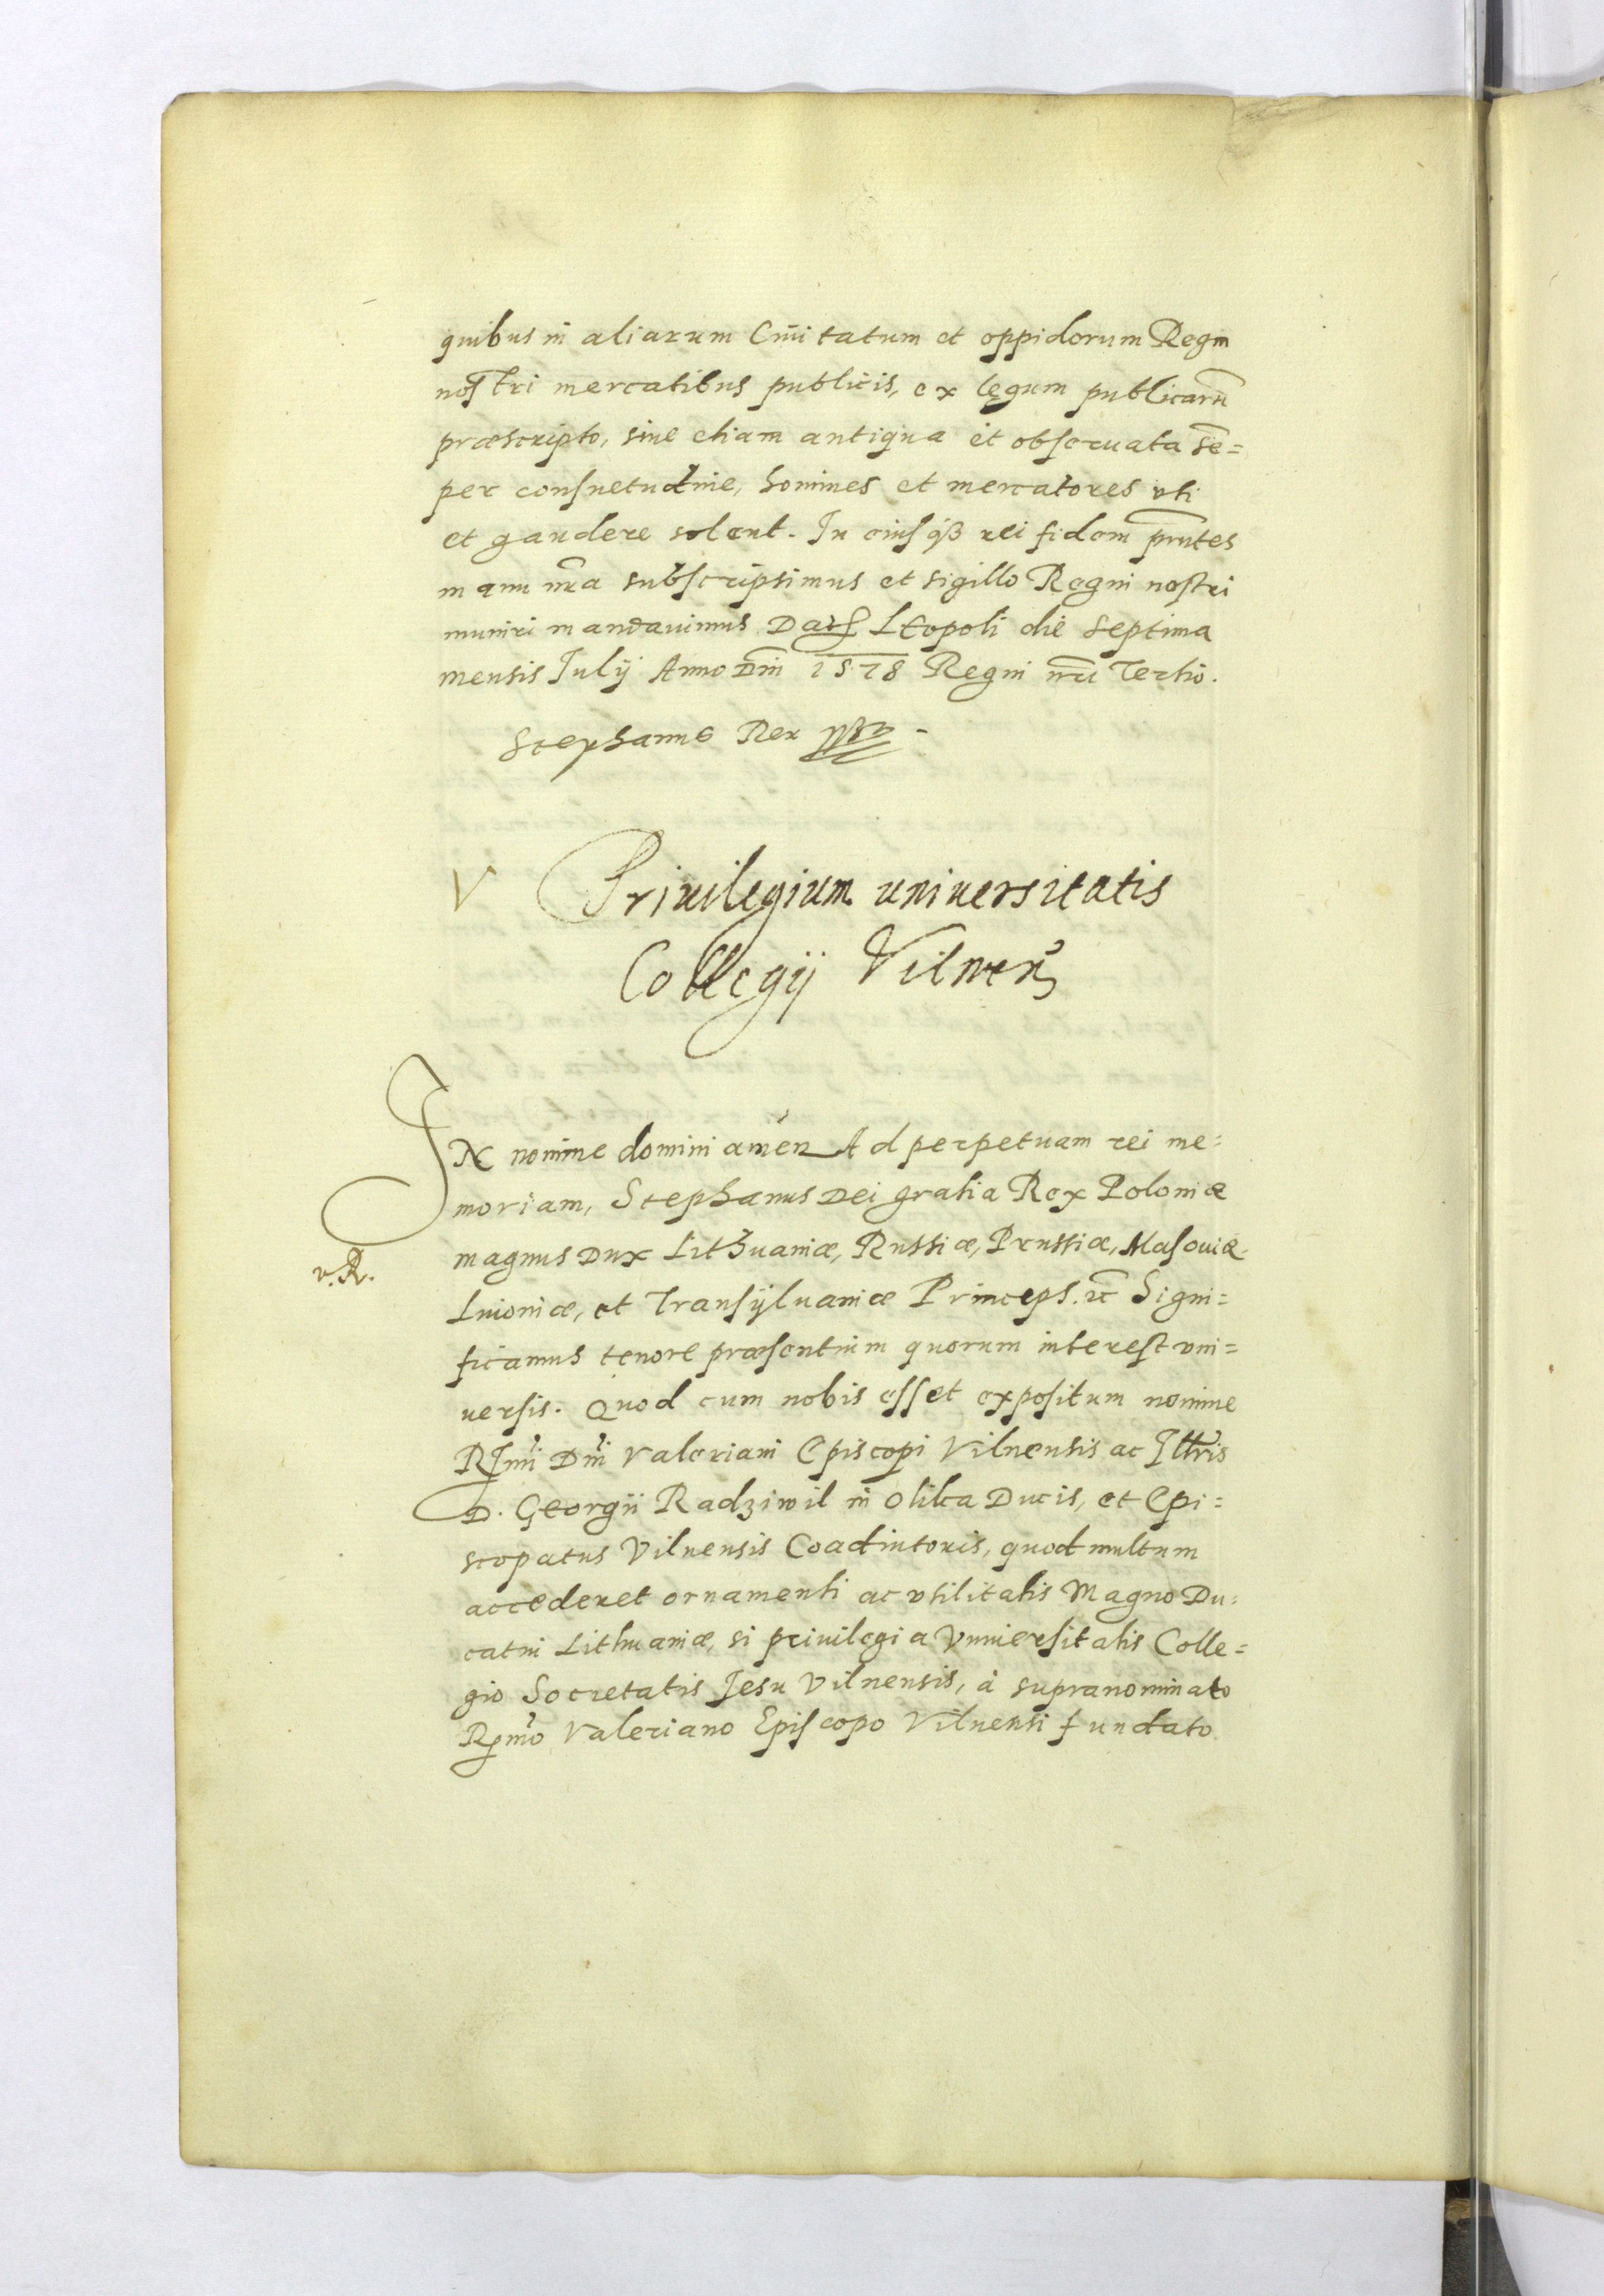 quibus in aliarum Ciuitatum et oppidorum Regni
nostri mercatibus publicis, ex legum publicarũ
præscripto, siue etiam antiqua et obseruata sẽ=
per consuetudine, homines et mercatores vti
et gaudere solent. In cuius rei fidem pñtes
manu nr̃a subscripsimus et sigillo Regni nostri
muniri mandauimus Dat Leopoli die septima
mensis Julij Anno Dñi 1578 Regni nr̃i Tertio.
Stephanus Rex
V Priuilegium uniuersitatis
Collegij Vilnen̄
IN nomine domini amen Ad perpetuam rei me=
moriam, Stephanus Dei gratia Rex Poloniæ
magnus Dux Lithuaniæ, Russiæ, Prussiæ, Masouiæ
v. R.
Liuoniæ, et Transyluaniæ Princeps. etc̃ Signi=
ficamus tenore præsentium quorum interest vni=
uersis. Quod cum nobis esset expositum nomine
Rm̃i Dñi Valeriani Episcopi Vilnensis ac Illris
D. Georgii Radziwil in Olika Ducis, et Epi=
scopatus Vilnensis Coadiutoris, quod multum
accederet ornamenti ac vtilitatis Magno Du=
catui Lithuaniæ, si priuilegia Vniuersitatis Colle=
gio Societatis Jesu Vilnensis, à supranominato
Rm̃o Valeriano Episcopo Vilnensi fundato